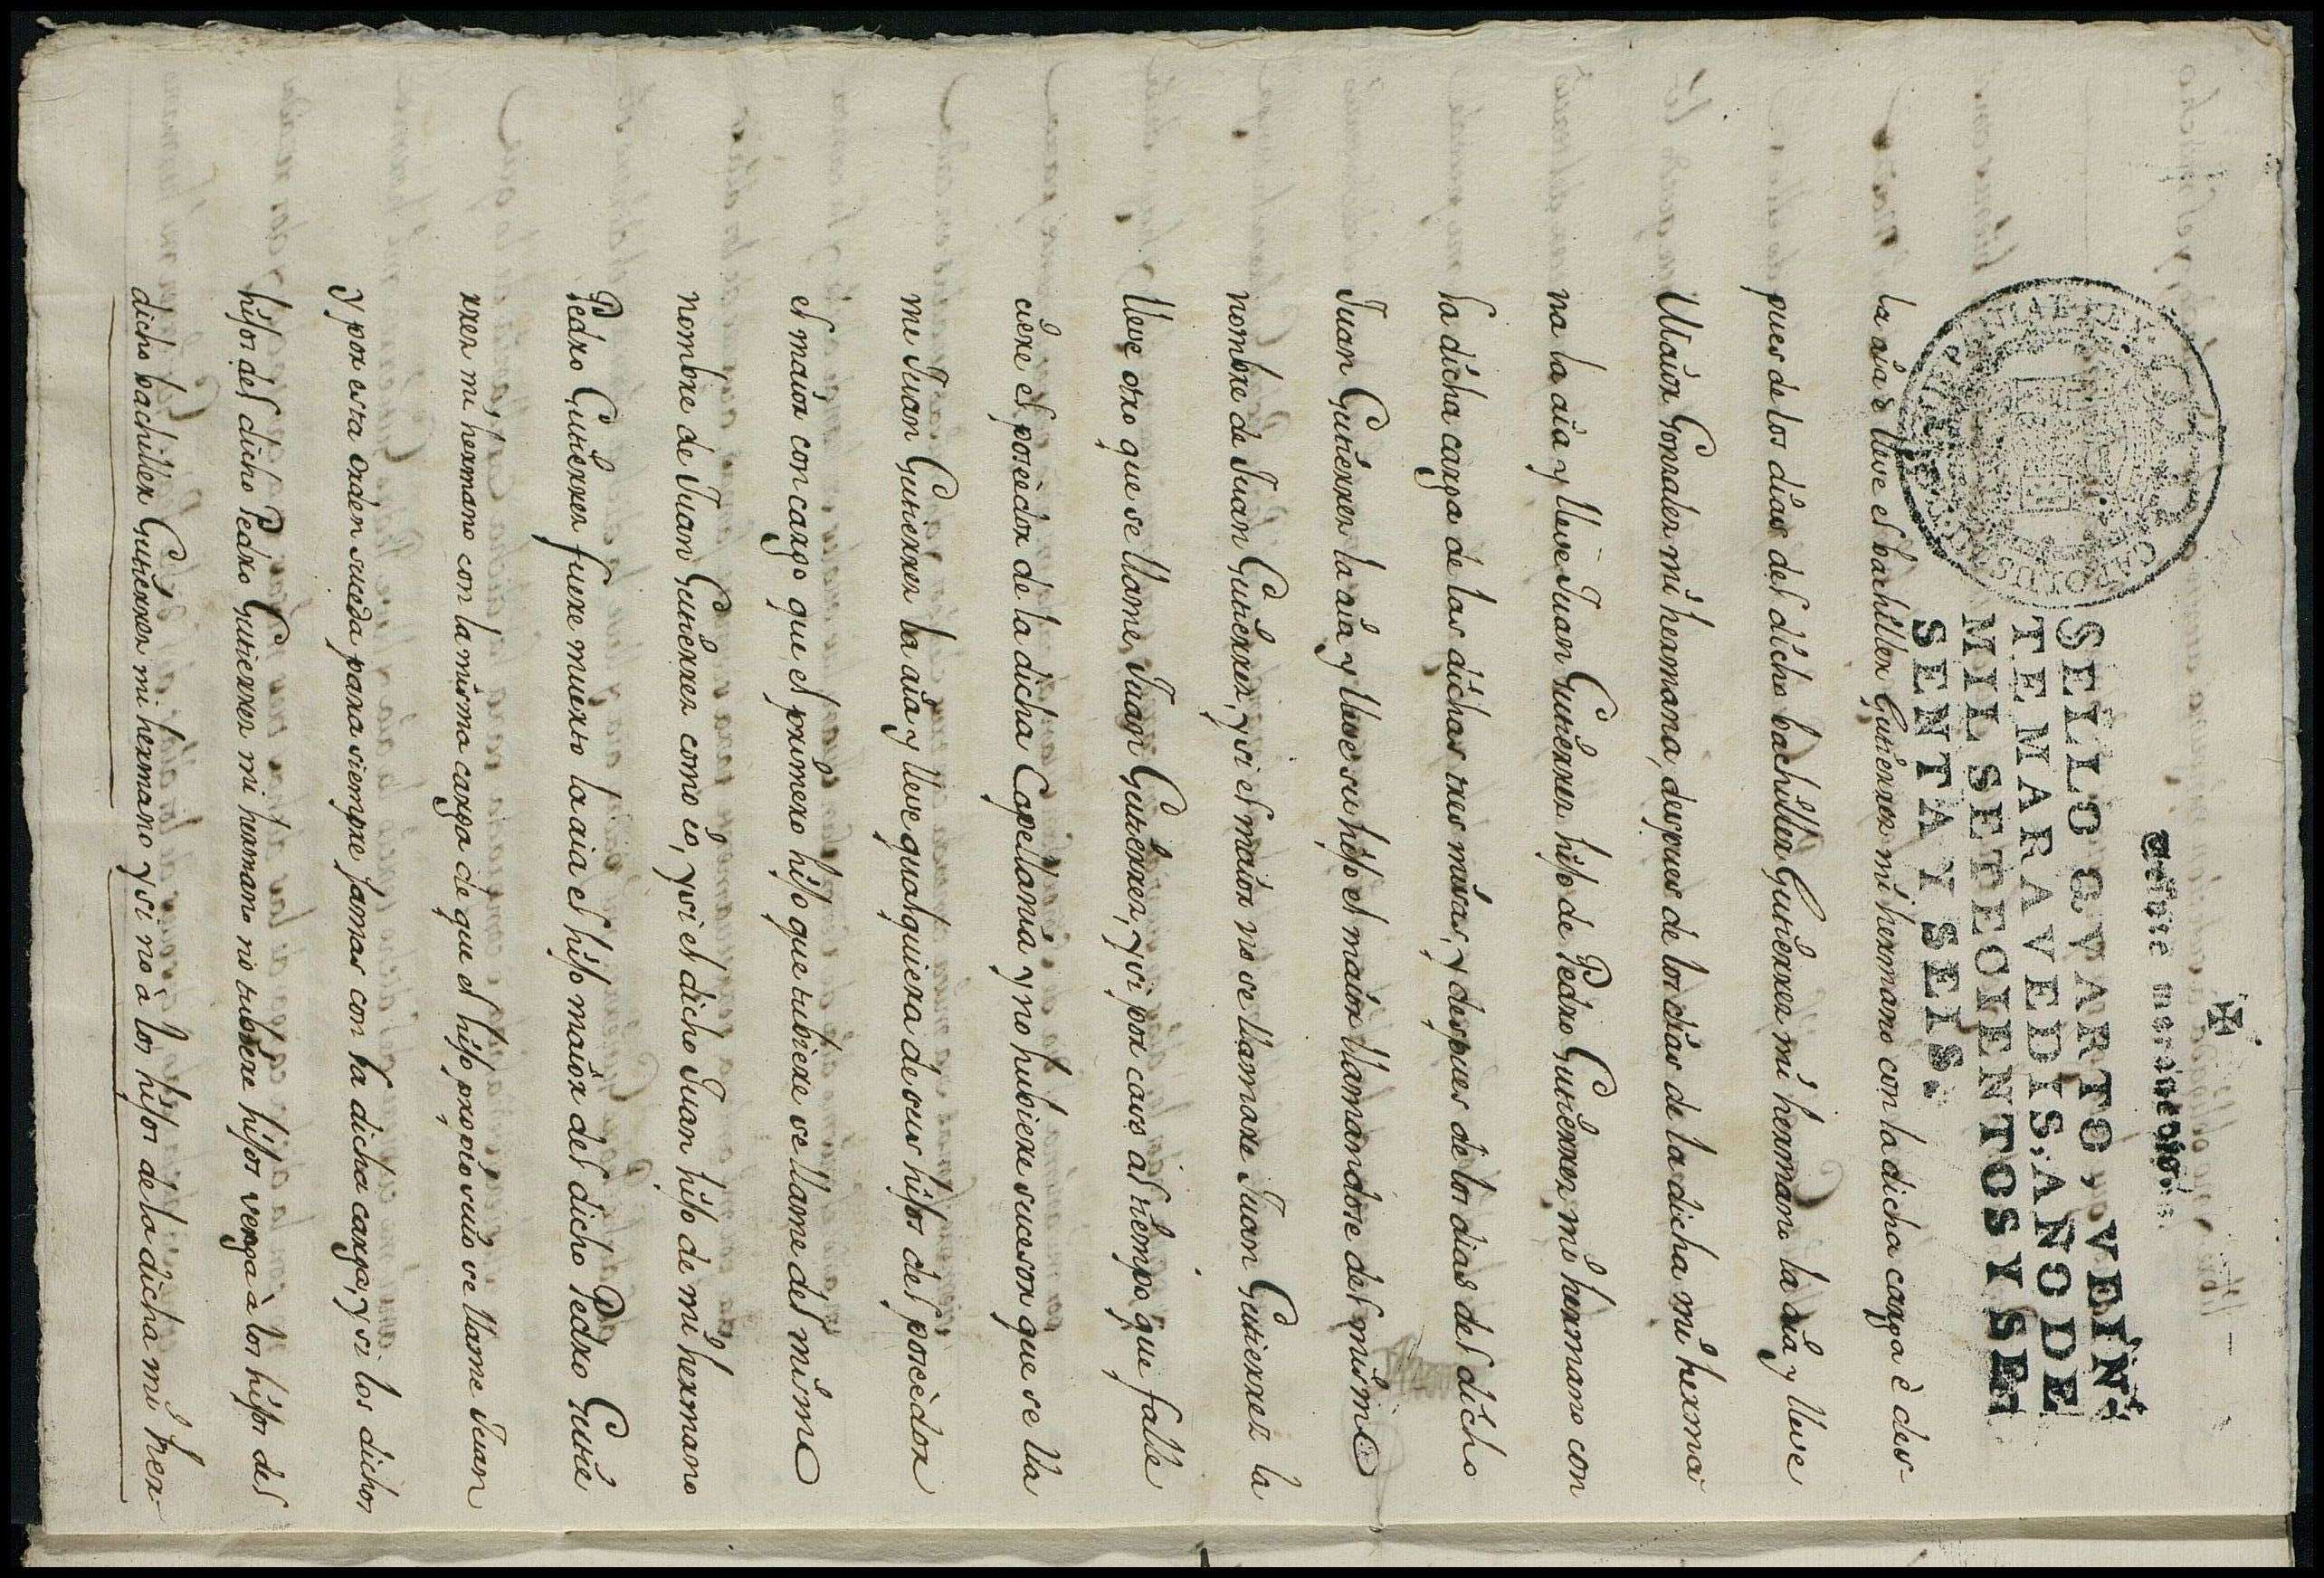 Veinte maravedis.
SELLO QVARTO, VEIN-
TE MARAVEDIS, AÑO DE
MIL SETECIENTOS Y SE-
SENTA Y SEIS.
CAROLUS
la aia è lleve el bachiller Gutierrez mi hermano con la dicha carga è des-
pues de los dias del dicho bachiller Gutierrez mi hermano la aia y lleve
Maior Gonzalez mi hermana, despues de los dias de la dicha mi herma
na la aia y lleve Juan Gutierrez hijo de Pedro Gutierrez mi hermano con
la dicha carga de las dichas tres misas, y despues de los dias del dicho
Juan Gutierrez la aia y lleve su hijo el maior llamandose del mismo
nombre de Juan Gutierrez, y si el maior no se llamare Juan Gutierrez la
lleve otro que se llame Juan Gutierrez, y si por caso al tiempo que falle
ciere el poseèdor de la dicha Capellania y no hubiere sucesor que se lla
me Juan Gutierrez la aia y lleve qualquiera de sus hijos del poseèdor
el maior con cargo que el primero hijo que tubiere se llame del mismo
nombre de Juan Gutierrez como io, y si el dicho Juan hijo de mi hermano
Pedro Gutierrez fuere muerto la aia el hijo maior del dicho Pedro Gutie
rrez mi hermano con la misma carga de que el hijo propio suio se llame Juan
y por esta orden suceda para siempre jamas con la dicha carga, y si los dichos
hijos del dicho Pedro Gutierrez mi hermano no tubiere hijos venga à los hijos del
dicho bachiller Gutierrez mi hermano y si no à los hijos de la dicha mi her-